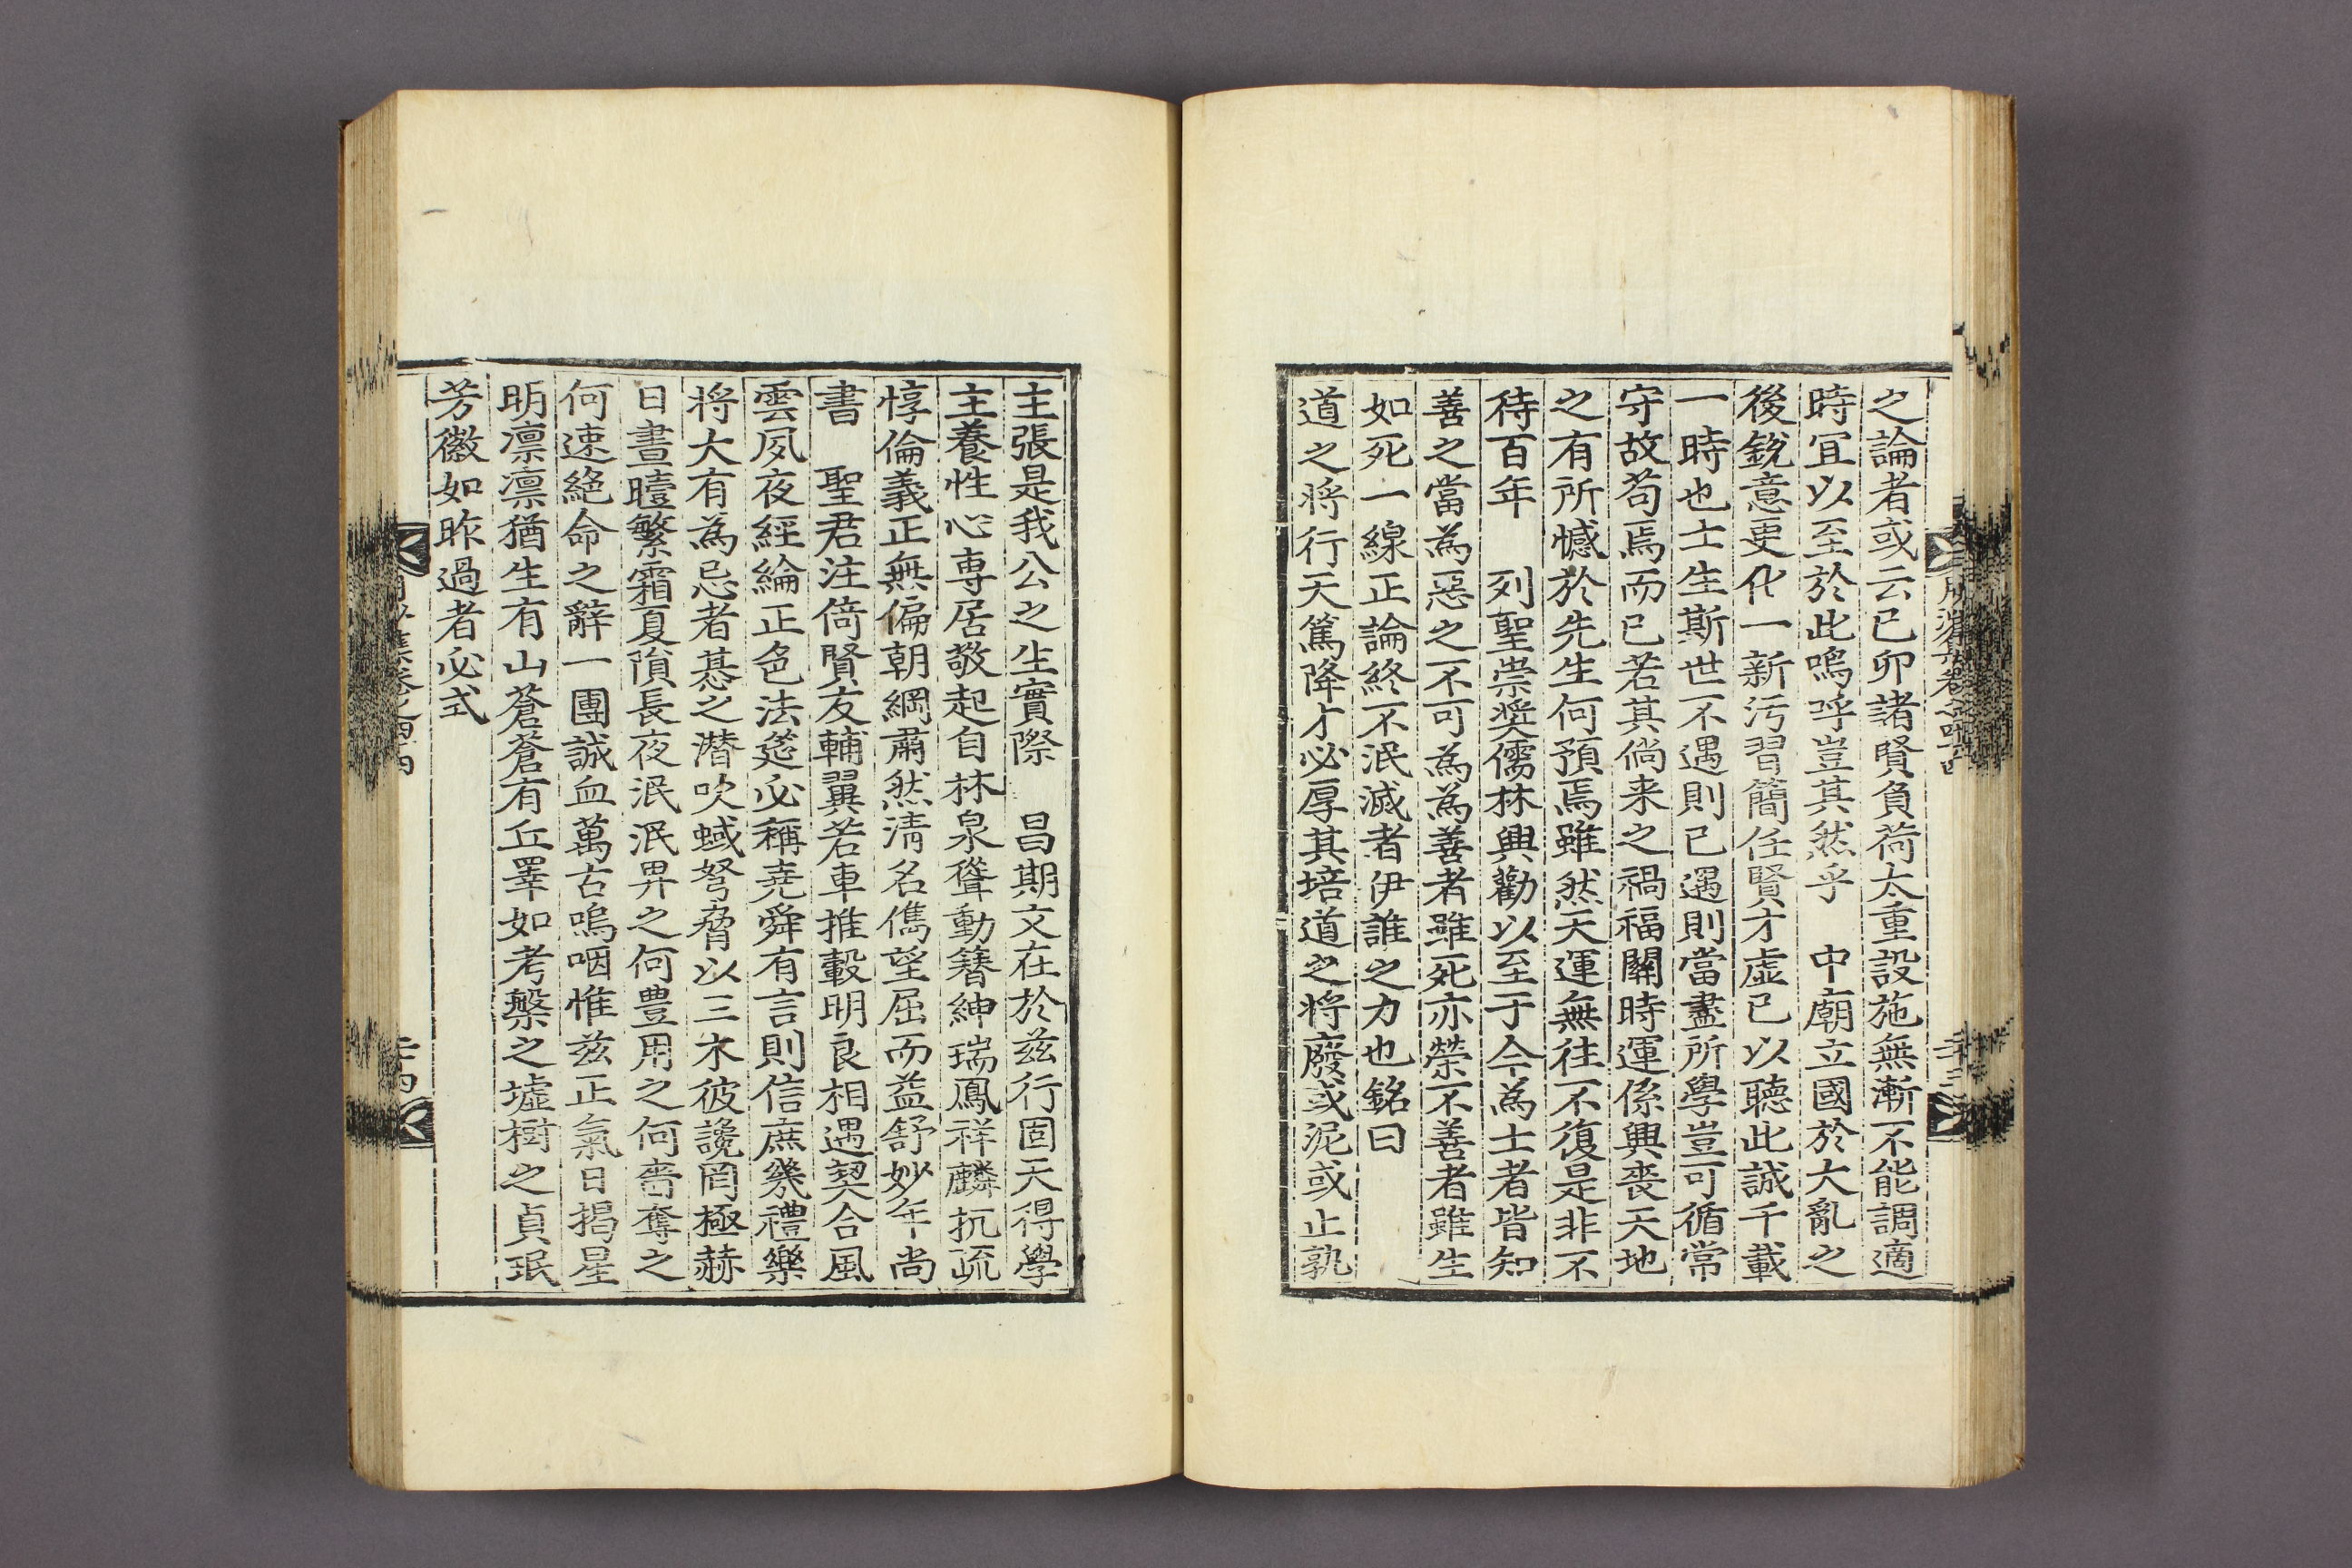 之論者或云已卯諸賢負荷太重設施無漸不能調適
時冝以至於此嗚呼豈其然乎　中廟立國於大亂之
後銳意更化一新污習簡任賢才虛已以聽此誠千載
一時也士生斯世不遇則已遇則當盡所學豈可循常
守故苟焉而已若其倘来之禍福關時運係興喪天地
之有所憾於先生何預焉雖然天運無往不復是非不
待百年　列聖崇奬儒林興勸以至于今為士者皆知
善之當為惡之不可為為善者雖死亦榮不善者雖生
如死一線正論終不泯滅者伊誰之力也銘曰
道之將行天篤降才必厚其培道之將廢或泥或止孰
主張是我公之生實際　昌期文在於茲行固天得學
主養性心専居敬起自林泉聳動簪紳瑞鳳祥麟抗疏
惇倫義正無偏朝綱肅然淸名儁望屈而益舒妙年尚
書　聖君注倚賢友輔翼若車推轂明良相遇契合風
雲夙夜經綸正色法筵必稱堯舜有言則信庶幾禮樂
將大有為忌者惎之潛吹蜮弩脅以三木彼讒罔極赫
日晝曀繁霜夏隕長夜泯泯畀之何豊用之何嗇奪之
何速絶命之辭一團誠血萬古嗚咽惟茲正氣日揭星
明凛凛猶生有山蒼蒼有丘睪如考槃之墟樹之貞珉
芳徽如昨過者必式
二十四